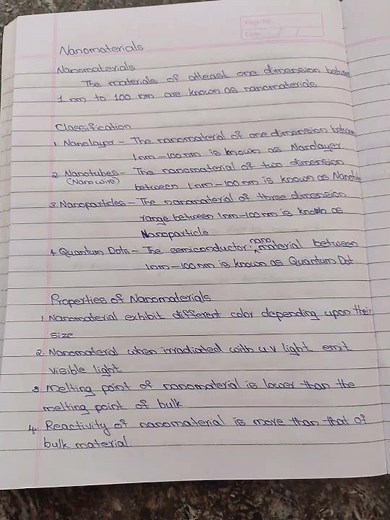 Page No.
Date
Nanomaterials
Nanomaterials
The materials of atleast one dimension between
1 nm to 100 nm are known as nanomaterials
Classification
1. Nanolayer - The nanomaterial of one dimension between
1nm-100nm is known as Nanolayer
2. Nanotubes - The nanomaterial of two dimension
(Nanowire) between 1nm-100nm is known as
3. Nanoparticles - The nanomaterial of three dimension
range between 1nm-100nm is known as
Nanoparticle
4. Quantum Dots - The semiconductor nano material between
1nm-100nm is known as Quantum Dot
Properties of Nanomaterials
1. Nanomaterial exhibit different color depending upon their
size
2. Nanomaterial when irradiated with u.v light emit
visible light
3. Melting point of nanomaterial is lower than the
melting point of bulk
4. Reactivity of nanomaterial is more than that of
bulk material